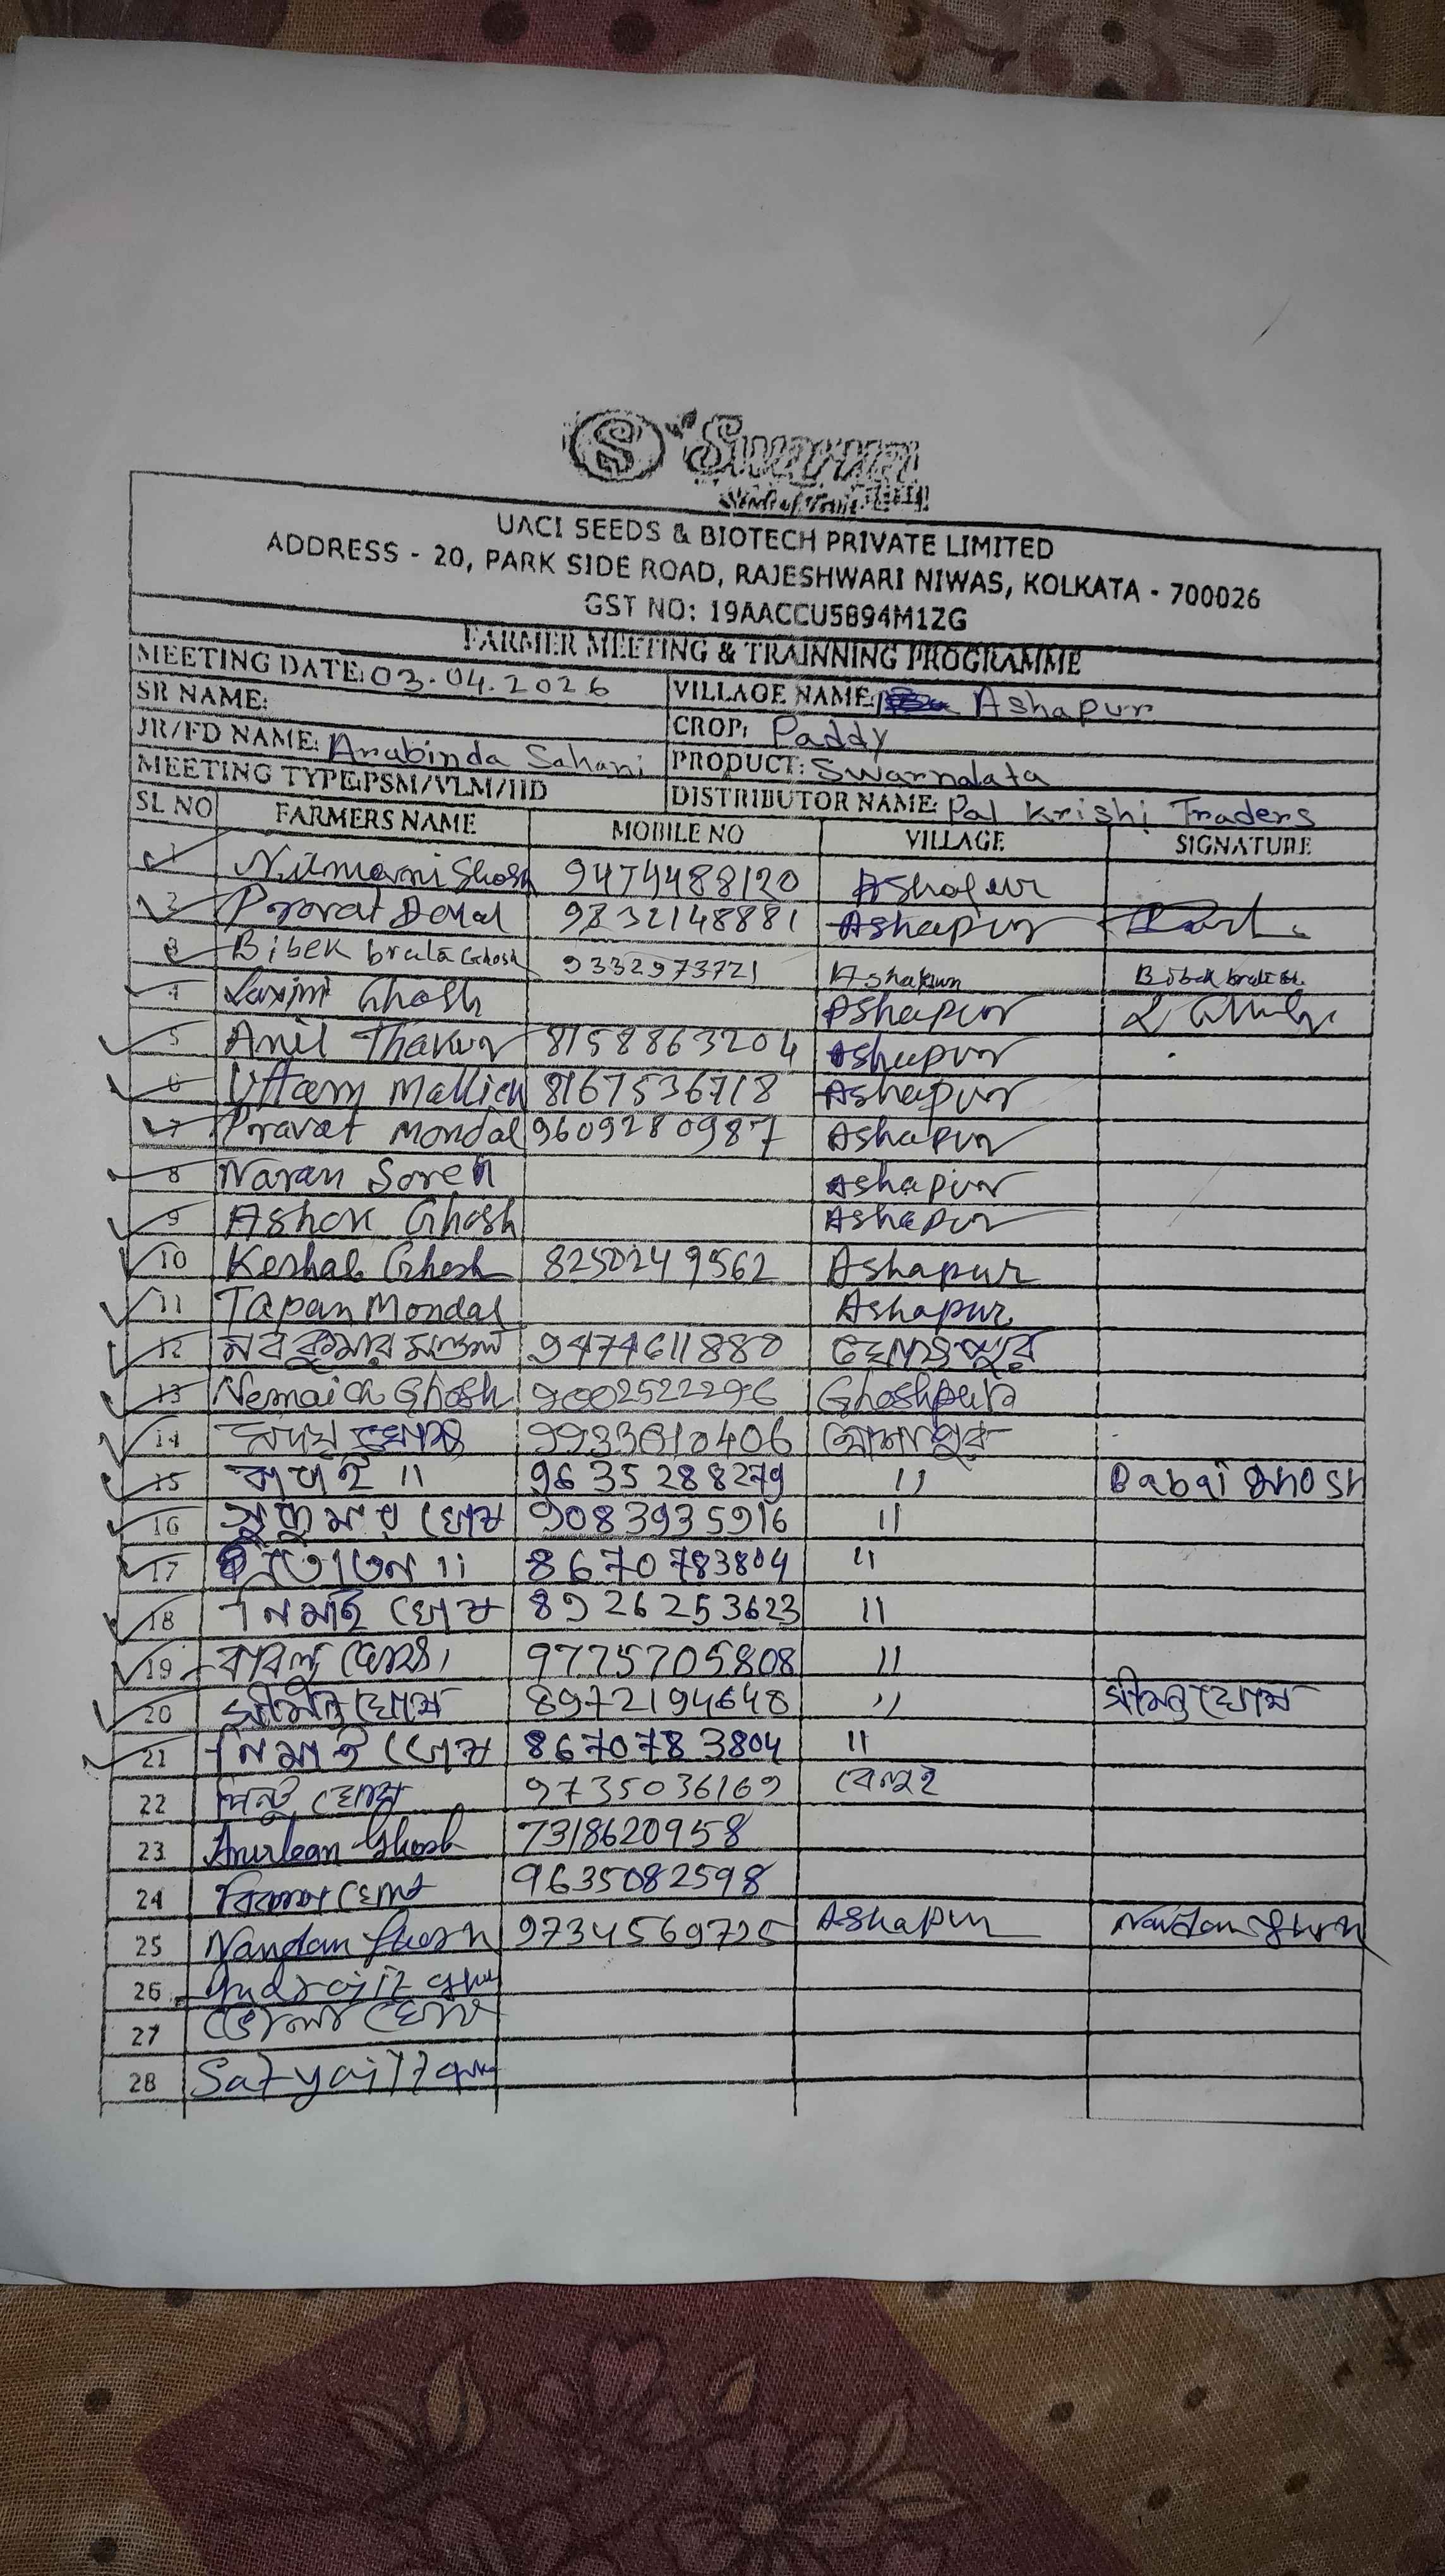 S Swarna
UACI SEEDS & BIOTECH PRIVATE LIMITED
ADDRESS - 20, PARK SIDE ROAD, RAJESHWARI NIWAS, KOLKATA - 700026
GST NO: 19AACCU5894M1ZG
FARMER MEETING & TRAINNING PROGRAMME
MEETING DATE: 03.04.2026 VILLAGE NAME: Ashapur
SR NAME: CROP: Paddy
JR/FD NAME: Arabinda Sahani PRODUCT: Swarnalata
MEETING TYPE:PSM/VLM/IID DISTRIBUTOR NAME: Pal Krishi Traders
SL NO FARMERS NAME MOBILE NO VILLAGE SIGNATURE
1 Nilmoni Ghosh 9474488120 Ashapur
2 Pravat 9832148881 Ashapur
3 Bibek brata Ghosh 9332973721 Ashapur Bibek brata
4 Laxmi Ghosh Ashapur
5 Anil Thakur 8158863204 Ashapur
6 Uttam Mallick 8167536718 Ashapur
7 Pravat Mondal 9609280987 Ashapur
8 Naran Soren Ashapur
9 Ashok Ghosh Ashapur
10 Keshab Ghosh 8250249562 Ashapur
11 Tapan Mondal Ashapur
12 নবকুমার মণ্ডল 9474611880
13 Nemaich Ghosh 9002522296 Ghoshpura
14 ঘোষ আশাপুর
15 বাপাই " 9635288279 " Babai Ghosh
16 সুকুমার ঘোষ 9083935916 "
17 " 8670783804 "
18 নিমাই ঘোষ 8926253623 "
19 বাবলু ঘোষ 9775705808 "
20 শ্রীমন্ত ঘোষ 8972194648 " শ্রীমন্ত ঘোষ
21 নিমাই ঘোষ 8670783804 "
22 পিন্টু ঘোষ 9735036169 বেলুই
23 Ghosh 7318620958
24 বিকাশ ঘোষ 9635082598
25 Nandan Ghosh 9734569725 Ashapur Nandan Ghosh
26 Indrajit
27 ভোলা ঘোষ
28 Satyajit